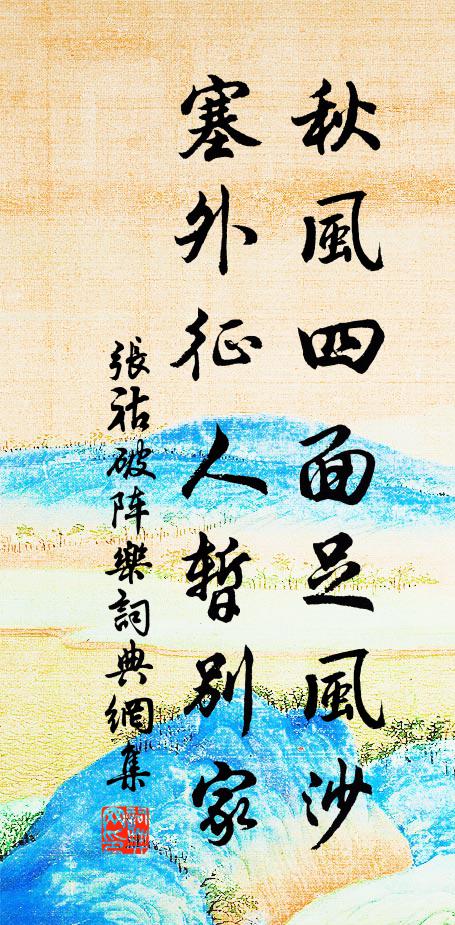 秋風四面足風沙
塞外征人暫別家
張祜破阵樂詞典網集